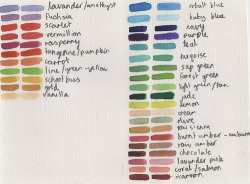 lavender/amethyst
fuchsia
scarlet
vermillion
raspberry
tangerine/pumpkin
carrot
lime/green-yellow
school bus
gold
vanilla
cobalt blue
baby blue
navy
purple
teal
turquoise
sap green
forest green
light green/fern
jade
lemon
cream
olive
raw sienna
burnt umber - auburn
raw umber
chocolate
lavender pink
coral/salmon
maroon